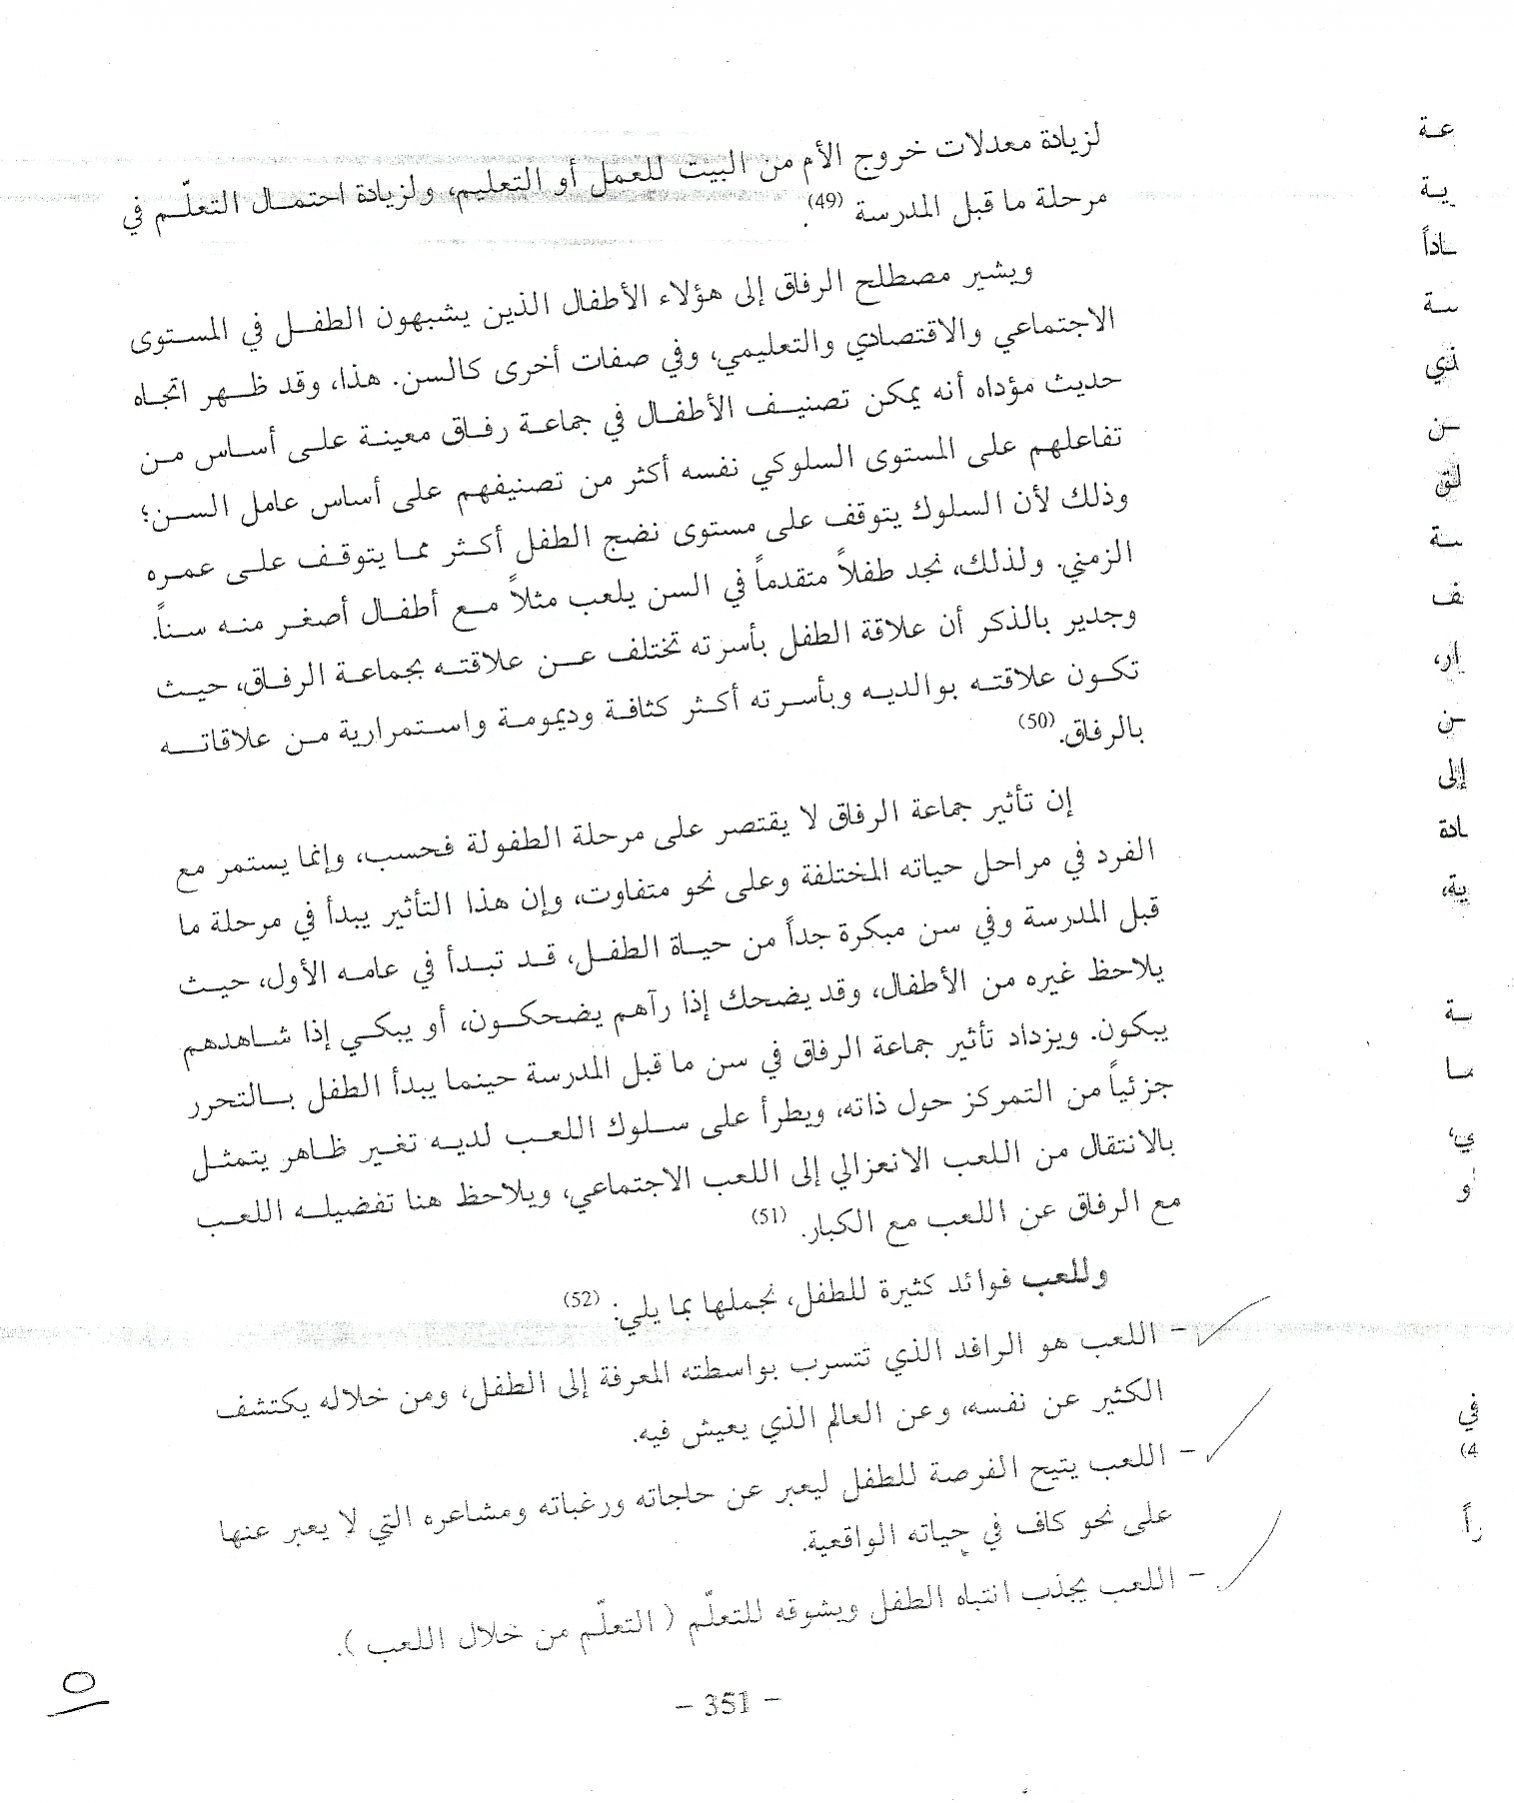 لزيادة معدلات خروج الأم من البيت للعمل أو التعليم، ولزيادة احتمال التعلّم في
مرحلة ما قبل المدرسة (49).
ويشير مصطلح الرفاق إلى هؤلاء الأطفال الذين يشبهون الطفل في المستوى
الاجتماعي والاقتصادي والتعليمي، وفي صفات أخرى كالسن. هذا، وقد ظهر اتجاه
حديث مؤداه أنه يمكن تصنيف الأطفال في جماعة رفاق معينة على أساس من
تفاعلهم على المستوى السلوكي نفسه أكثر من تصنيفهم على أساس عامل السن؛
وذلك لأن السلوك يتوقف على مستوى نضج الطفل أكثر مما يتوقف على عمره
الزمني. ولذلك، نجد طفلاً متقدماً في السن يلعب مثلاً مع أطفال أصغر منه سناً.
وجدير بالذكر أن علاقة الطفل بأسرته تختلف عن علاقته بجماعة الرفاق، حيث
تكون علاقته بوالديه وبأسرته أكثر كثافة وديمومة واستمرارية من علاقاته
بالرفاق.(50)
إن تأثير جماعة الرفاق لا يقتصر على مرحلة الطفولة فحسب، وإنما يستمر مع
الفرد في مراحل حياته المختلفة وعلى نحو متفاوت، وإن هذا التأثير يبدأ في مرحلة ما
قبل المدرسة وفي سن مبكرة جداً من حياة الطفل، قد تبدأ في عامه الأول، حيث
يلاحظ غيره من الأطفال، وقد يضحك إذا رآهم يضحكون، أو يبكي إذا شاهدهم
يبكون. ويزداد تأثير جماعة الرفاق في سن ما قبل المدرسة حينما يبدأ الطفل بالتحرر
جزئياً من التمركز حول ذاته، ويطرأ على سلوك اللعب لديه تغير ظاهر يتمثل
بالانتقال من اللعب الانعزالي إلى اللعب الاجتماعي، ويلاحظ هنا تفضيله اللعب
مع الرفاق عن اللعب مع الكبار. (51)
وللعب فوائد كثيرة للطفل، نجملها بما يلي: (52)
- اللعب هو الرافد الذي تتسرب بواسطته المعرفة إلى الطفل، ومن خلاله يكتشف
الكثير عن نفسه، وعن العالم الذي يعيش فيه.
- اللعب يتيح الفرصة للطفل ليعبر عن حاجاته ورغباته ومشاعره التي لا يعبر عنها
على نحو كاف في حياته الواقعية.
- اللعب يجذب انتباه الطفل ويشوقه للتعلّم ( التعلّم من خلال اللعب ).
- 351 -
٥